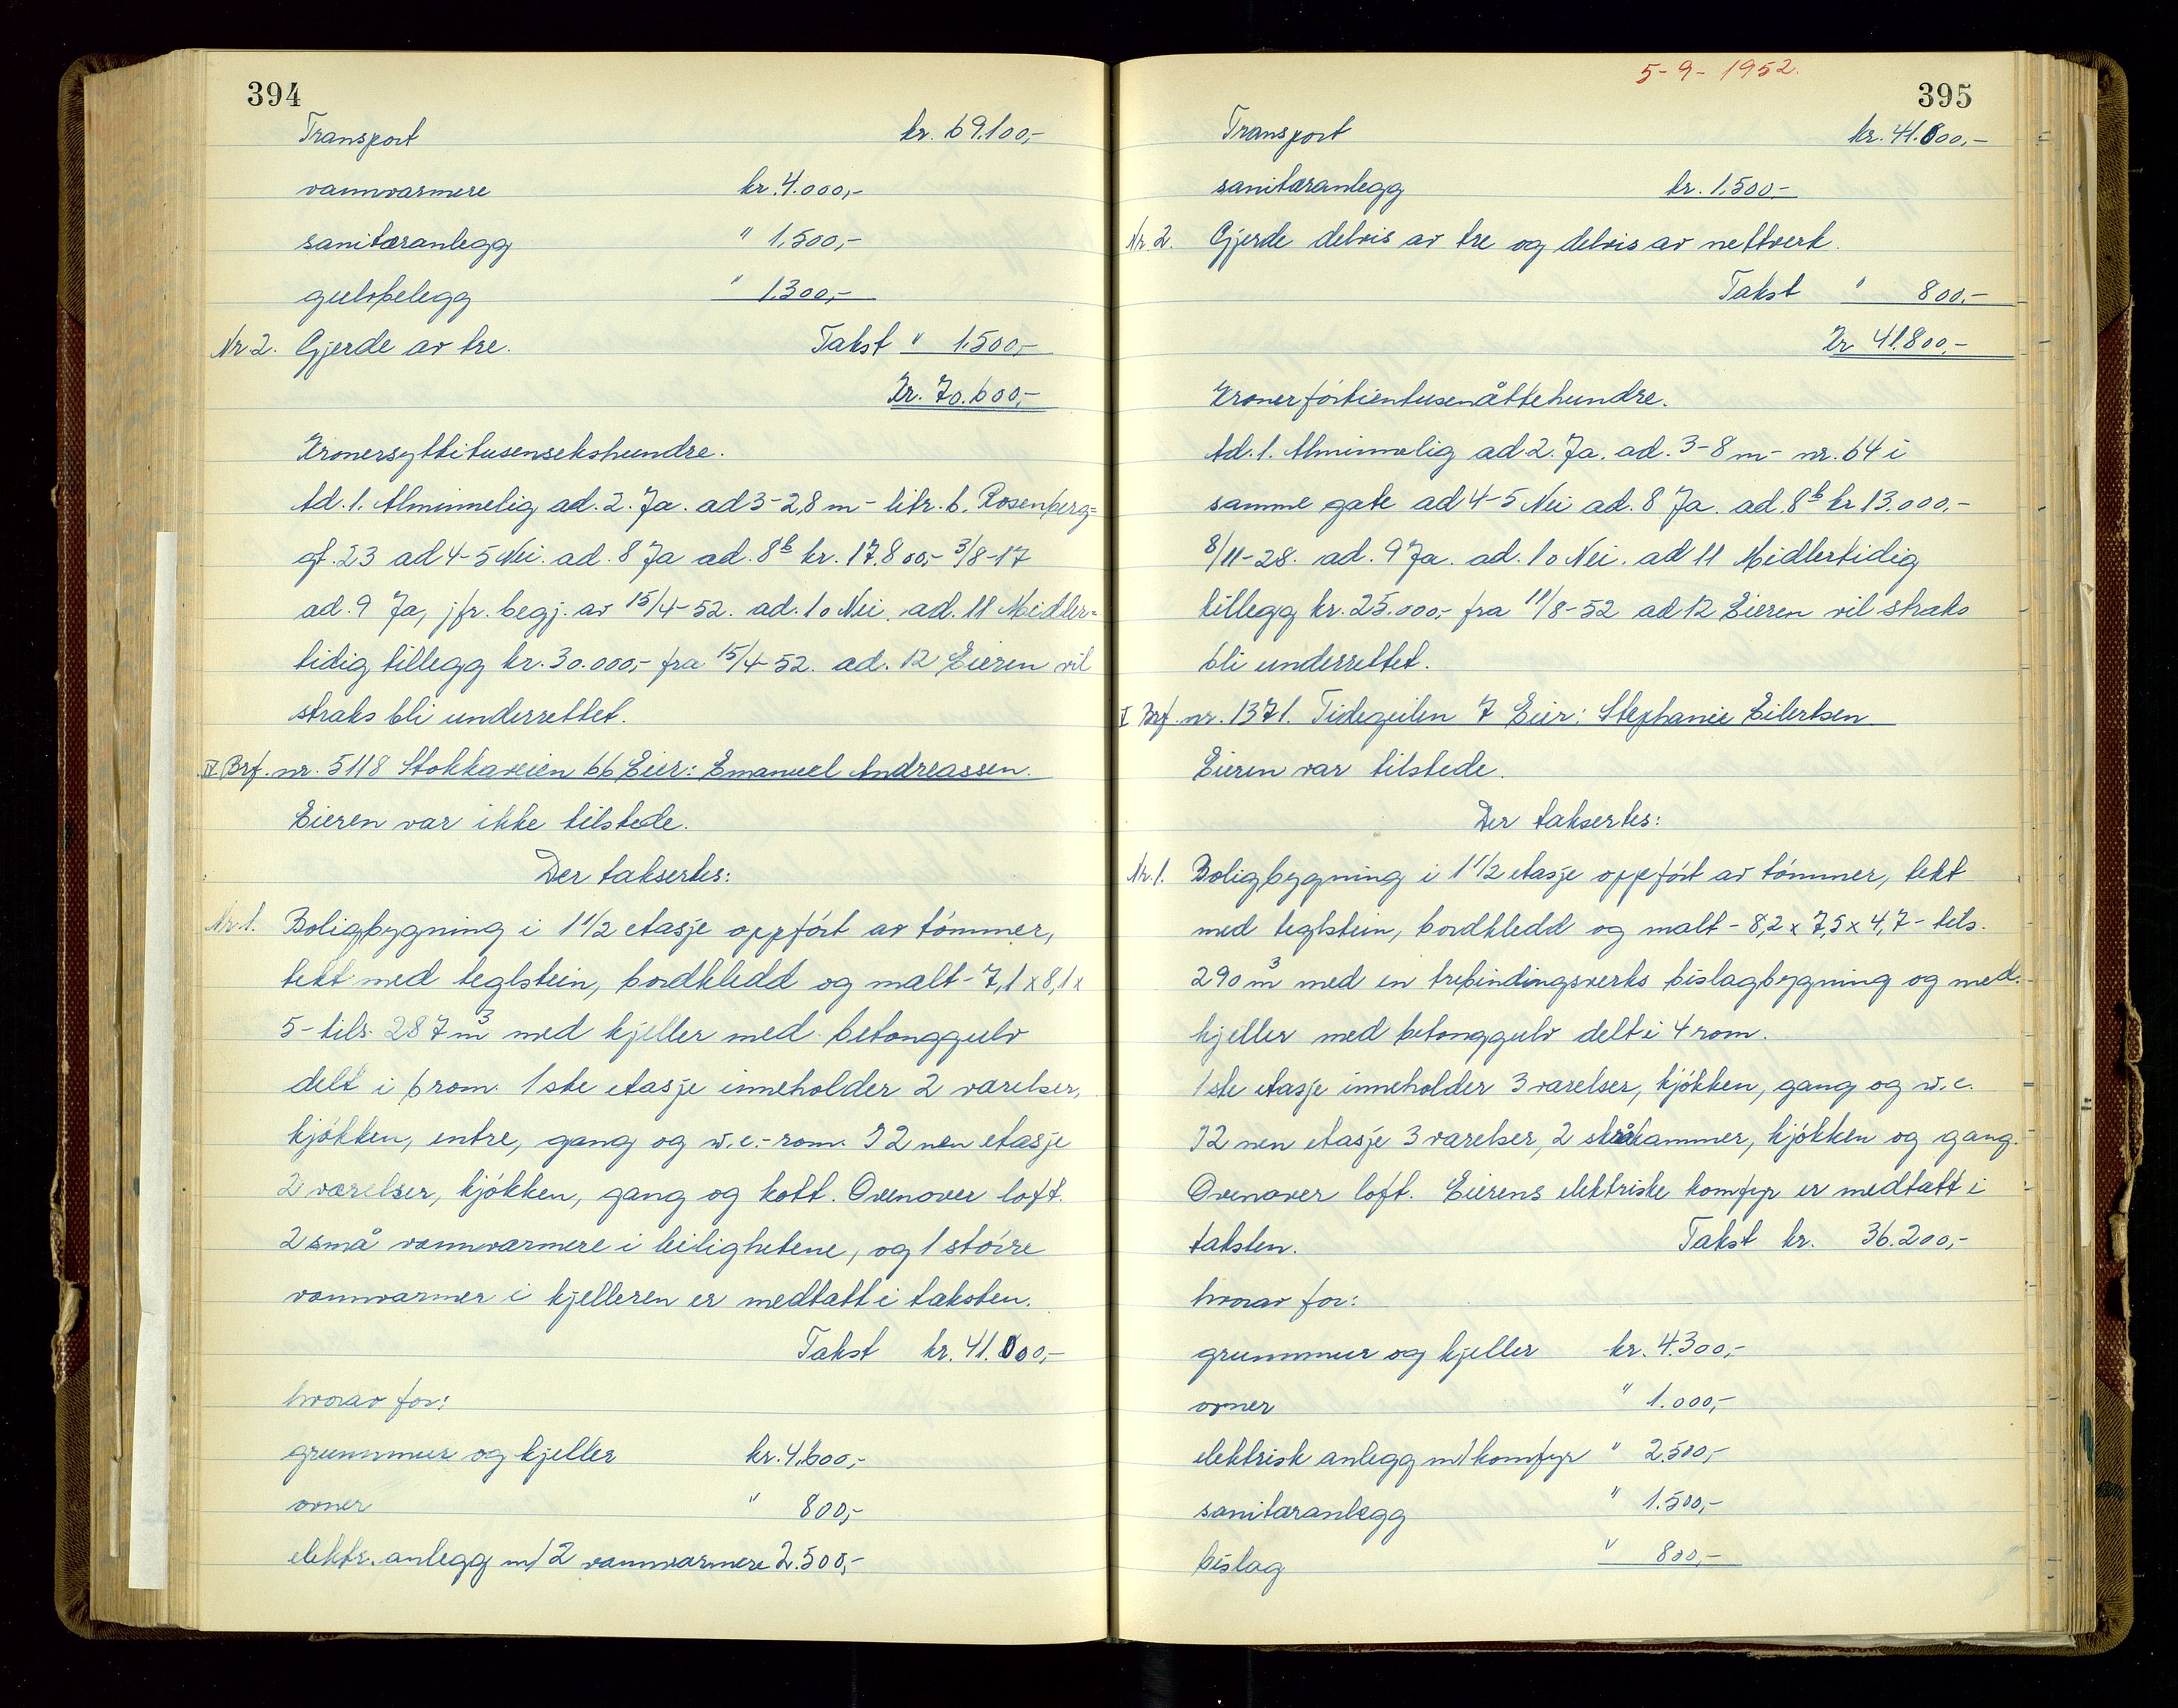 394
Transport kr. 69.100,-
vannvarmere kr. 4.000,-
sanitæranlegg " 1.500,-
gulvbelegg " 1.300,-
Nr. 2. Gjerde av tre. Takst " 1.500,-
Kr. 70.600,-
Kronersyttitusensekshundre.
Ad. 1. Alminnelig ad. 2. Ja. ad 3-2,8 m - litr. b. Rosenberg=
gt. 23 ad 4-5 Nei. ad. 8 Ja ad. 8b kr. 17.800,- 3/8-17
ad. 9 Ja, jfr. begj. av 15/4-52. ad. 10 Nei. ad. 11 Midler=
tidig tillegg kr. 30.000,- fra 15/4-52. ad. 12 Eieren vil
straks bli underrettet.
IV Brf. nr. 5118 Stokkaveien 66 Eier: Emanuel Andreassen.
Eieren var ikke tilstede.
Der taksertes:
Nr. 1. Boligbygning i 1 1/2 etasje oppført av tømmer,
tekt med teglstein, bordkledd og malt - 7,1 x 8,1 x
5 - tils. 287 m3 med kjeller med betonggulv
delt i 6 rom. 1 ste etasje inneholder 2 værelser,
kjøkken, entre, gang og w.c.-rom. I 2 nen etasje
2 værelser, kjøkken, gang og kott. Ovenover loft.
2 små vannvarmere i leilighetene, og 1 større
vannvarmer i kjelleren er medtatt i taksten.
Takst kr. 41.000,-
hvorav for:
grunnmur og kjeller kr. 4.600,-
ovner " 800,-
elektr. anlegg m/ 2 vannvarmere 2.500,-
5-9-1952.
395
Transport kr. 41.000,-
sanitæranlegg kr. 1.500,-
Nr. 2. Gjerde delvis av tre og delvis av nettverk.
Takst " 800,-
Kr 41.800,-
Kronerførtientusenåttehundre.
Ad. 1. Alminnelig ad. 2. Ja. ad. 3-8 m - nr. 64 i
samme gate ad 4-5 Nei ad. 8 Ja. ad. 8b kr 13.000,-
8/11-28. ad. 9 Ja. ad. 10 Nei. ad 11 Midlertidig
tillegg kr. 25.000,- fra 11/8-52 ad 12 Eieren vil straks
bli underrettet.
V Brf. nr. 1371. Tidegeilen 7 Eier: Stephanie Eilertsen
Eieren var tilstede.
Der taksertes:
Nr. 1. Boligbygning i 1 1/2 etasje oppført av tømmer, tekt
med teglstein, bordkledd og malt - 8,2 x 7,5 x 4,7 - tils.
290 m3 med en trebindingsverks bislagbygning og med
kjeller med betonggulv delt i 4 rom.
1 ste etasje inneholder 3 værelser, kjøkken, gang og w.c.
I 2 nen etasje 3 værelser, 2 skråkammer, kjøkken og gang.
Ovenover loft. Eierens elektriske komfyr er medtatt i
taksten. Takst kr. 36.200,-
hvorav for:
grunnmur og kjeller kr. 4.300,-
ovner " 1.000,-
elektrisk anlegg m/ komfyr " 2.500,-
sanitæranlegg " 1.500,-
bislag " 800,-